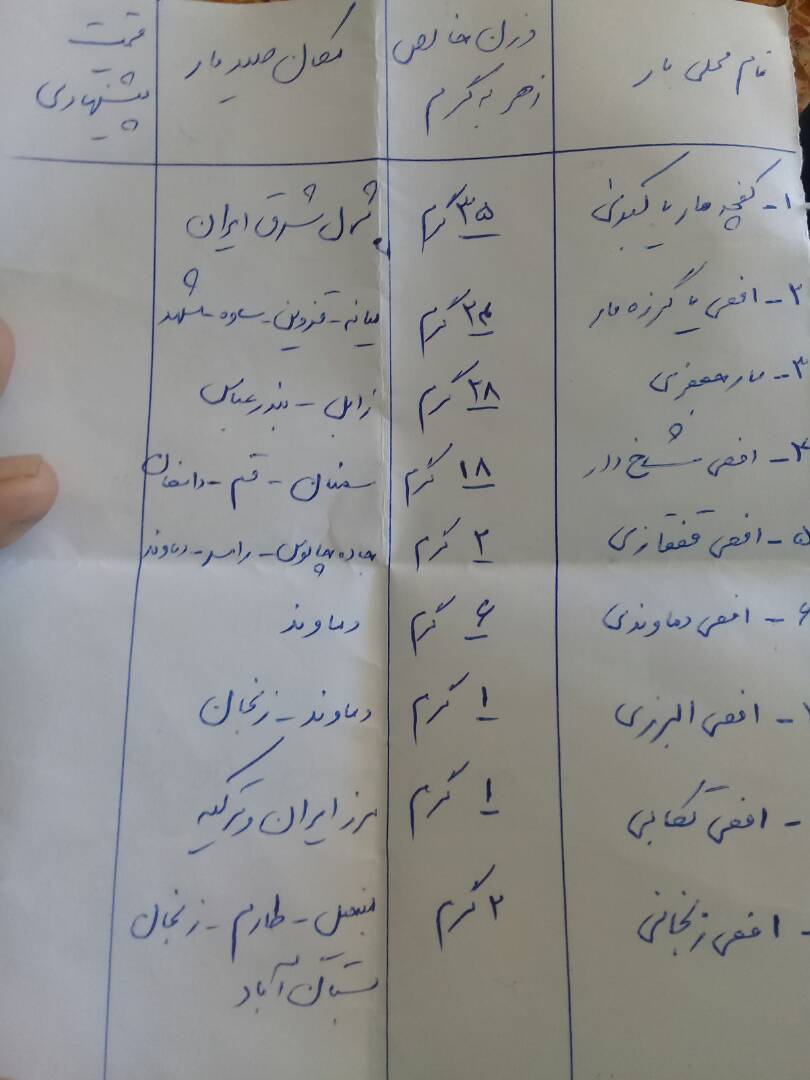 نام محلی مار
وزن خالص
زهر به گرم
مکان صید مار
قیمت
پیشنهادی
۱- کفچه مار یا کبری
۳۵ گرم
شمال شرق ایران
۲- افعی یا گرزه مار
۲۴ گرم
میانه - قزوین - ساوه - مشهد
۳- مار جعفری
۲۸ گرم
زابل - بندرعباس
۴- افعی شاخ دار
۱۸ گرم
سمنان - قم - دامغان
۵- افعی قفقازی
۲ گرم
جاده چالوس - رامسر - دماوند
۶- افعی دماوندی
۶ گرم
دماوند
- افعی البرزی
۱ گرم
دماوند - زنجان
- افعی تکابی
۱ گرم
مرز ایران و ترکیه
- افعی زنجانی
۲ گرم
منجیل - طارم - زنجان
بستان آباد